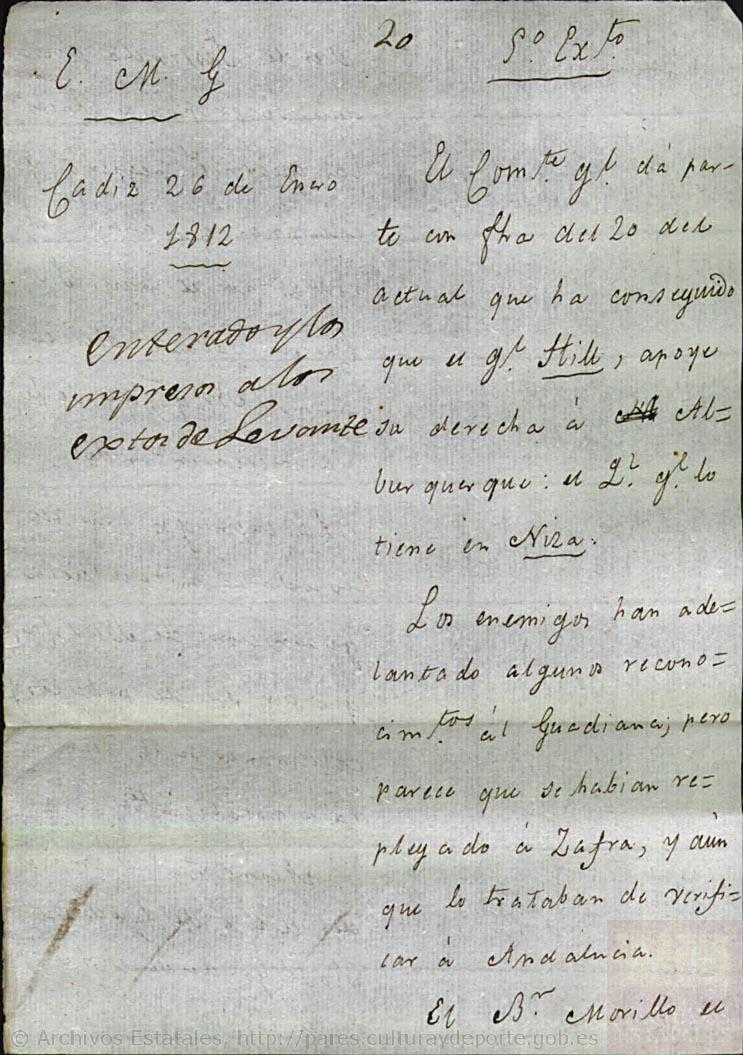 20
E. M. G
Cadiz 26 de Enero
1812
enterado y los
impresos a los
extos de Levante
5.º Ex.to
El Com.te g.l dá par-
te con fha del 20 del
actual que ha conseguido
que el g.l Hill, apoye
su derecha á Al=
burquerque: el Q.l g.l lo
tiene en Niza.
Los enemigos han ade=
lantado algunos recono=
cim.tos ál Guadiana; pero
parece que se habian re=
plegado á Zafra, y aún
que lo trataban de verifi=
car á Andalucia.
El B.r Morillo el
© Archivos Estatales, http://pares.culturaydeporte.gob.es